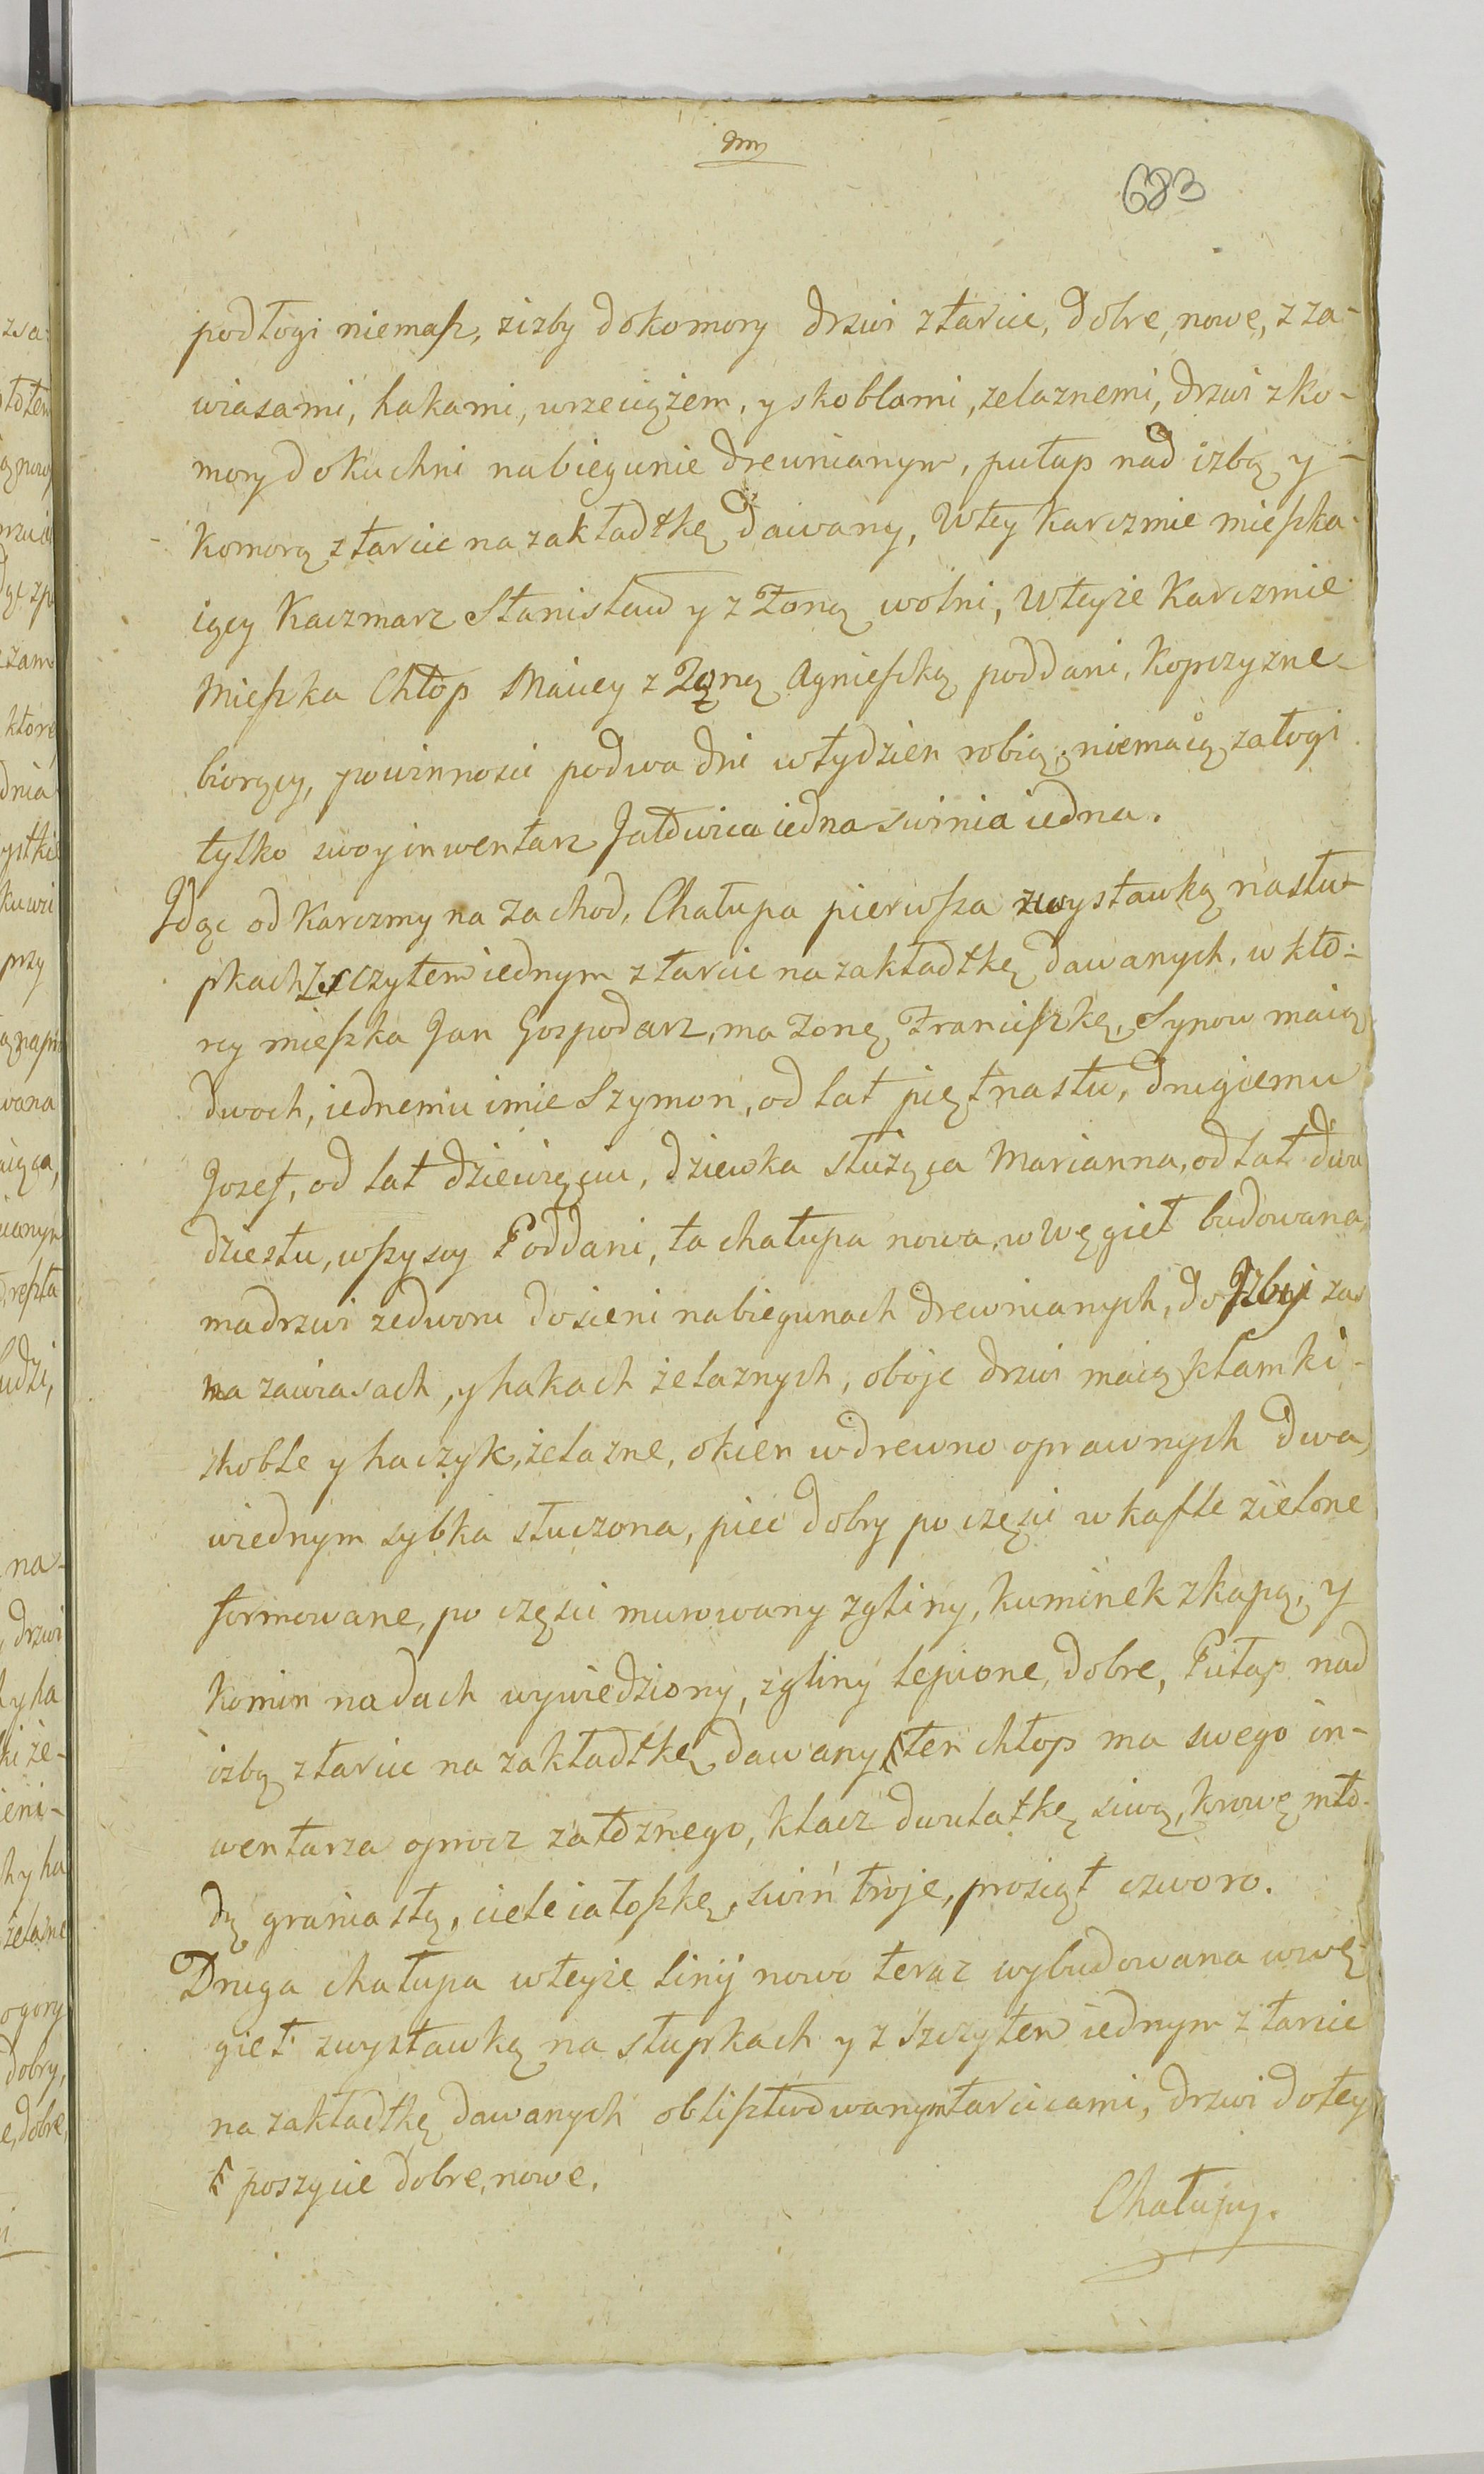 683
podłogi niemasz, zizby dokomory drzwi ztarcic, dobre, nowe, z za-
wiasami, hakami, wrzeciążem, y skoblami, zelaznemi, drzwi zko-
mory dokuchni nabiegunie drewnianym, pułap nad izbą y-
komorą ztarcic na zakładtkę dawany, Wtey karczmie mieszka-
iący Kaczmarz Stanisław y z Zoną wolni, wteyże karczmie
mieszka Chłop Maciey z Zoną Agnieszką poddani, kopczyzne-
biorący, powinnosci podwa dni wtydzien robią, niemaią załogi
tylko swoy inwentarz Jałowica iedna swinia iedna.
Jdąc od Karczmy na zachod, Chałupa pierwsza zwystawką nasłu-
pkach, z szczytem iednym ztarcic na zakładtkę dawanych, w kto-
rey mieszka Jan Gospodarz, ma zonę Franciszkę, Synow maią
dwoch, iednemu imie Szymon, od lat piętnastu, drugiemu
Jozef, od lat dziewięciu, dziewka służąca Marianna, od lat dwu
dziestu, wszyscy Poddani, ta chałupa nowa, w Węgieł budowana
ma drzwi zedworu dosieni nabiegunach drewnianych, do Jzby zas
na zawiasach, y hakach żelaznych, oboje drzwi maią klamki-
skoble y haczyk, żelazne, okien wdrewno oprawnych dwa,
wiednym sybka stuczona, piec dobry po części w kafle zielone
formowane, po części murowany zgliny, kuminek zkapą, y
komin nadach wywiedziony, zgliny lepione, dobre, Pułap nad
izbą ztarcic na zakładtkę dawany, ten chłop ma swego in-
wentarza oprocz załoznego, klacz dwulatkę siwą, krowę mło-
dą graniastą, cieleiałoszkę, swiń troje, prosiąt czworo.
Druga chałupa wteyże linij nowo teraz wybudowana wwę-
gieł zwystawką na słupkach y z szczytem iednym ztarcic
na zakładtkę dawanych oblisztwowanym tarcicami, drzwi dotey
poszycie dobre, nowe.
Chałupy.